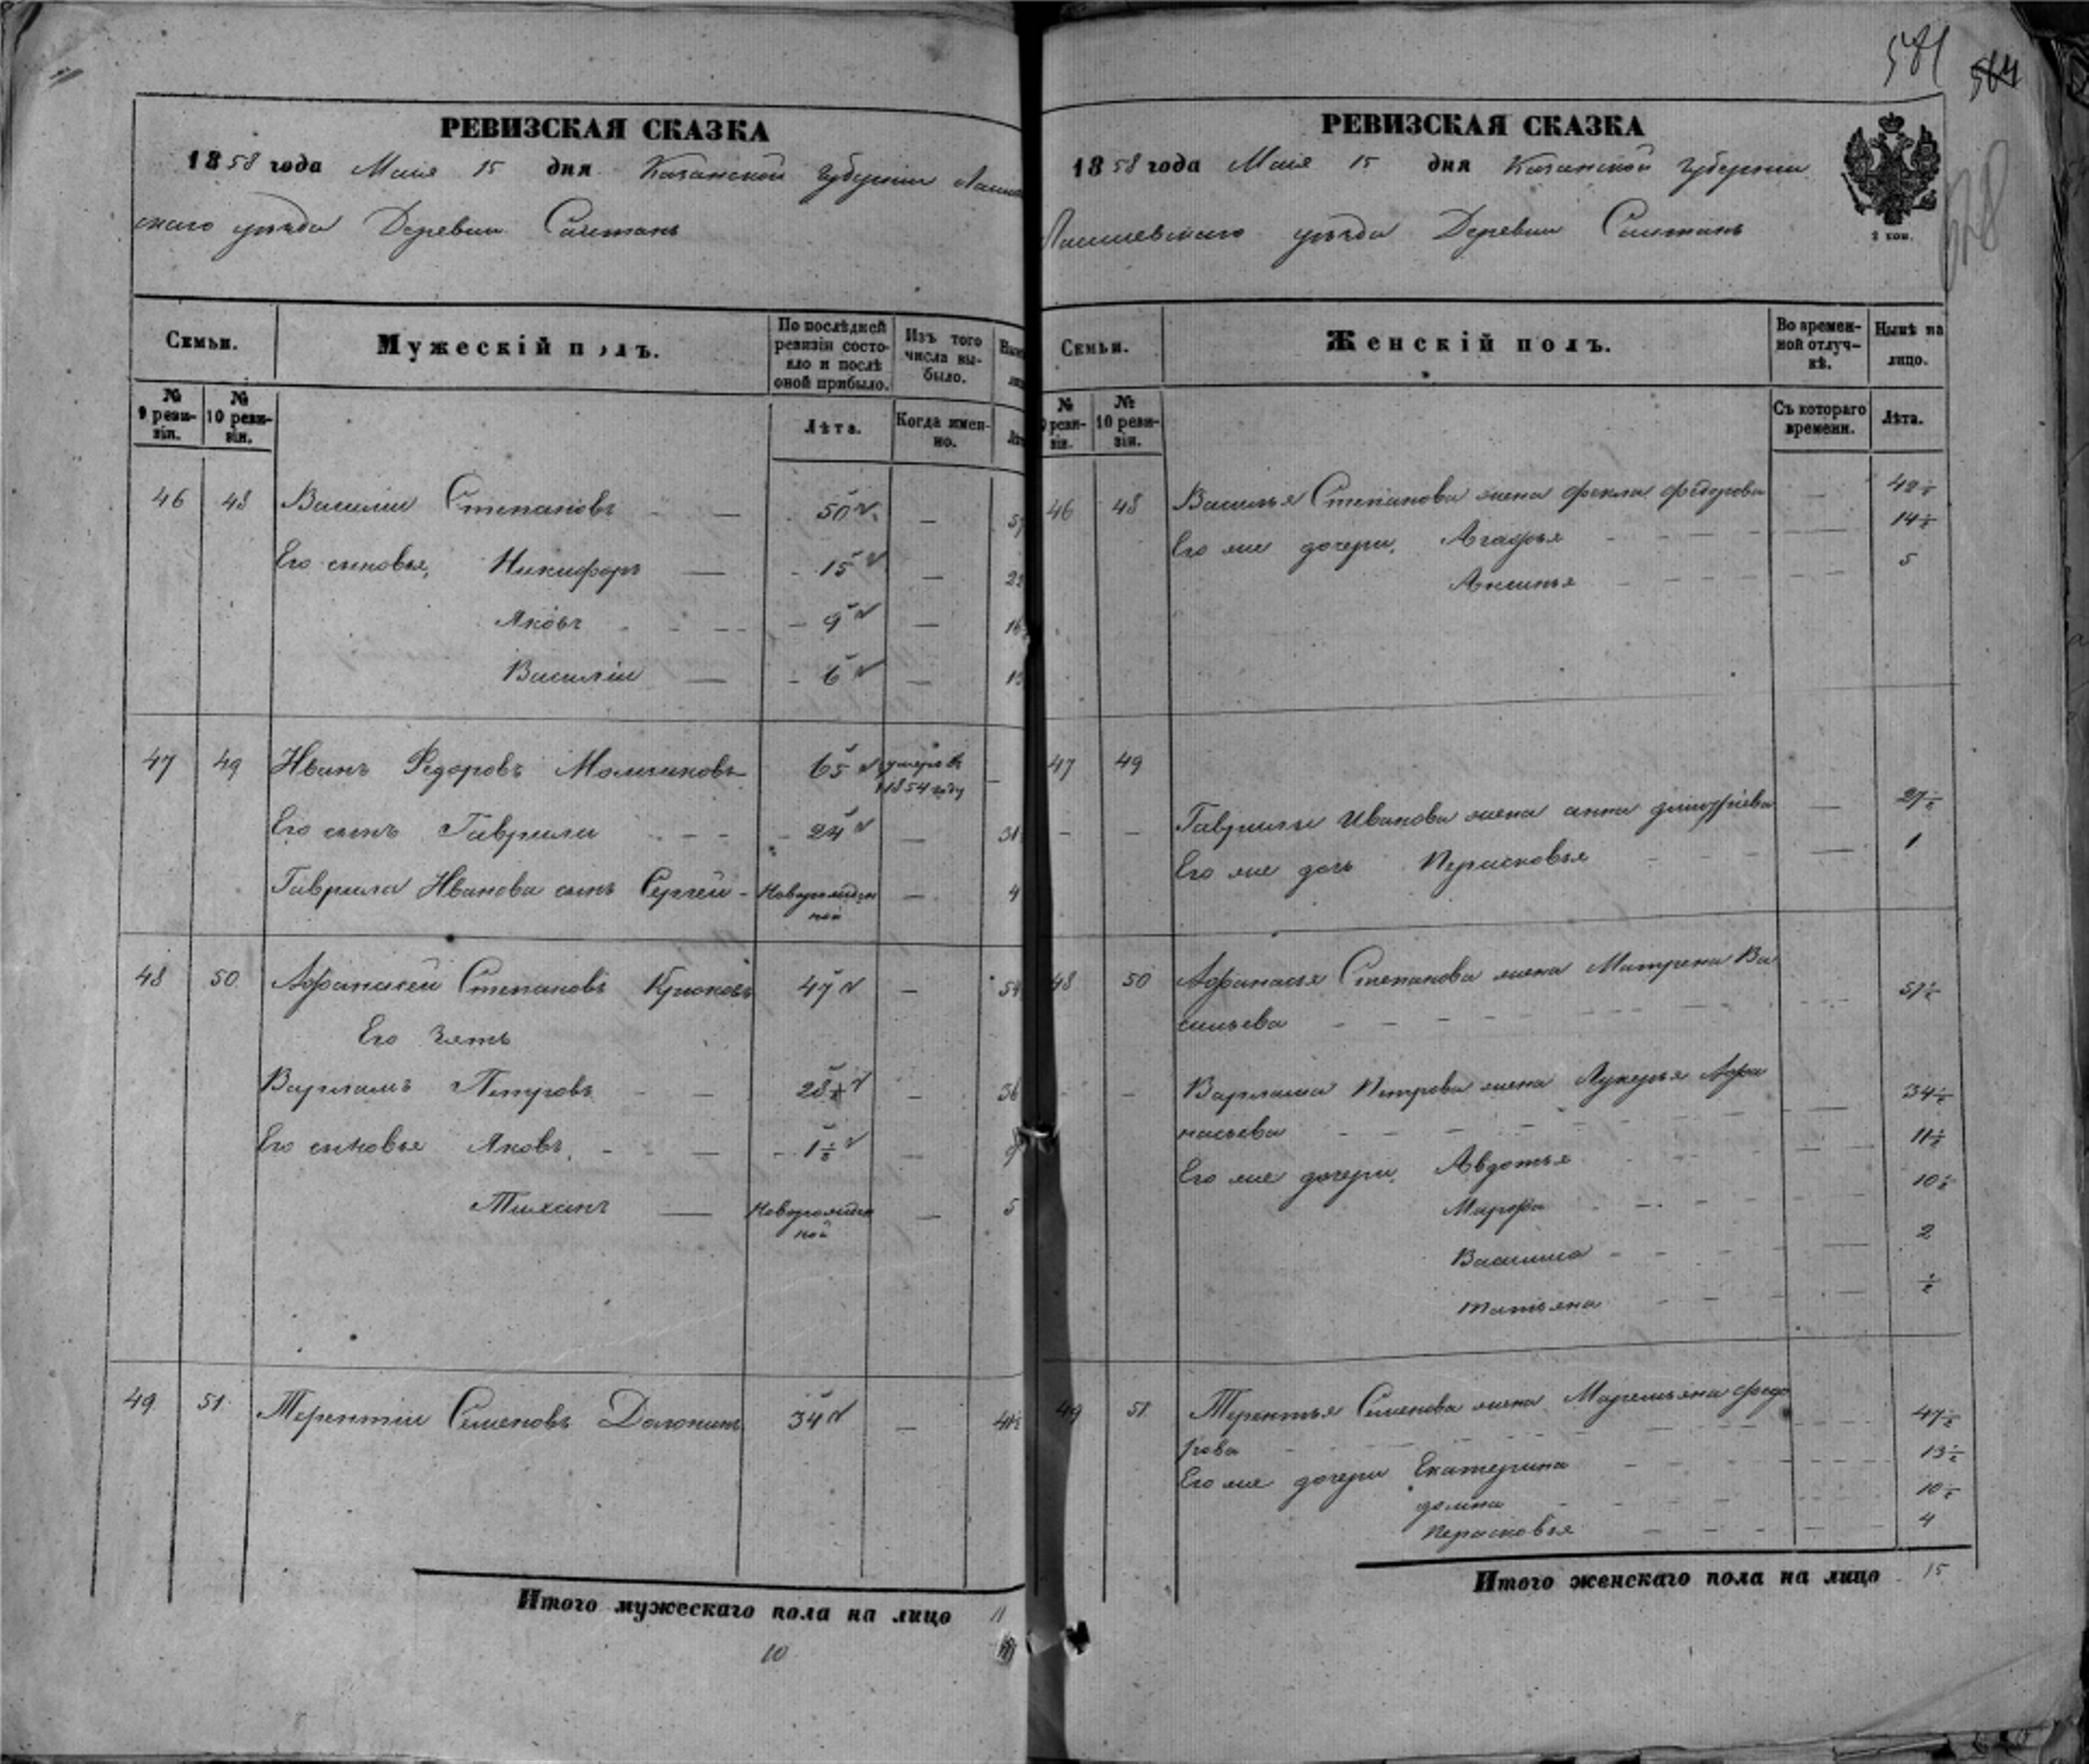 581 564
РЕВИЗСКАЯ СКАЗКА
1858 года Маія 15 дня Казанской губерніи Лаише
скаго уѣзда Деревни Саитанъ
Семьи.
Мужескій полъ.
По послѣдней ревизіи состояло и послѣ оной прибыло.
Изъ того числа выбыло.
№ 9 ревизіи.
№ 10 ревизіи.
Лѣта.
Когда именно.
46 48 Василіи Степановъ — 50 —
Его сыновья, Никифоръ — 15 — 22
Яковъ — 9 — 16
Василіи — 6 — 13
47 49 Иванъ Федоровъ Молчановъ 65 умеръ въ 1854 году —
Его сынъ Гаврила — 24 — 31
Гаврила Иванова сынъ Сергѣй - Новорожденной — 4
48 50 Афанасей Степановъ Крюковъ 47 — 54
Его зять
Варламъ Петровъ — 28 — 36
Его сыновья Яковъ, — 1½ — 9
Тиханъ — Новорожденной — 5
49 51 Терентіи Семеновъ 34 — 41½
Итого мужескаго пола на лицо 11
10
РЕВИЗСКАЯ СКАЗКА
1858 года Маія 15 дня Казанской губерніи
Лаишевскаго уѣзда Деревни Саитанъ
2 коп.
Семьи.
Женскій полъ.
Во временной отлучкѣ.
Нынѣ на лицо.
№ 9 ревизіи.
№ 10 ревизіи.
Съ котораго времени.
Лѣта.
46 48 Василья Степанова жена Фекла Федорова — 42½
Его же дочери, Агафья — 14½
Аксинья — 5
47 49
Гаврилы Иванова жена анна дмитріева — 27½
Его же дочь Парасковья — 1
48 50 Афанасья Степанова жена Матрена Ва
сильева — 51½
Варлама Петрова жена Лукерья Афа
насьева — 34½
Его же дочери, Авдотья — 11½
Марфа — 10½
Василиса — 2
татьяна — ½
49 51 Терентья Семенова жена Маремьяна федо
рова — 47½
Его же дочери Екатерина — 13½
домна — 10½
Парасковья — 4
Итого женскаго пола на лицо 15